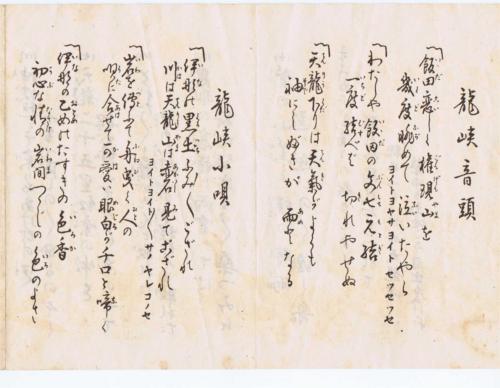 龍峡音頭
飯田恋しく権現山を
幾度眺めて泣いたやら
ヨイトヨヤサヨイトセツセツセ
わたしや飯田の文七元結
一度結べば切れやせぬ
天龍下りは天気がよくも
袖にしぶきが雨となる
龍峡小唄
伊那は黒土ふみしござれ
川は天龍山は赤石見ておざれ
ヨイトヨイトヨイトサノヤレコノセ
岩を傳ふて舟曳く人の
唄に合せて可愛い眼白がチロと啼く
伊那の乙女はたすきの色香
初心な情の岩間つゝじの色のよさ